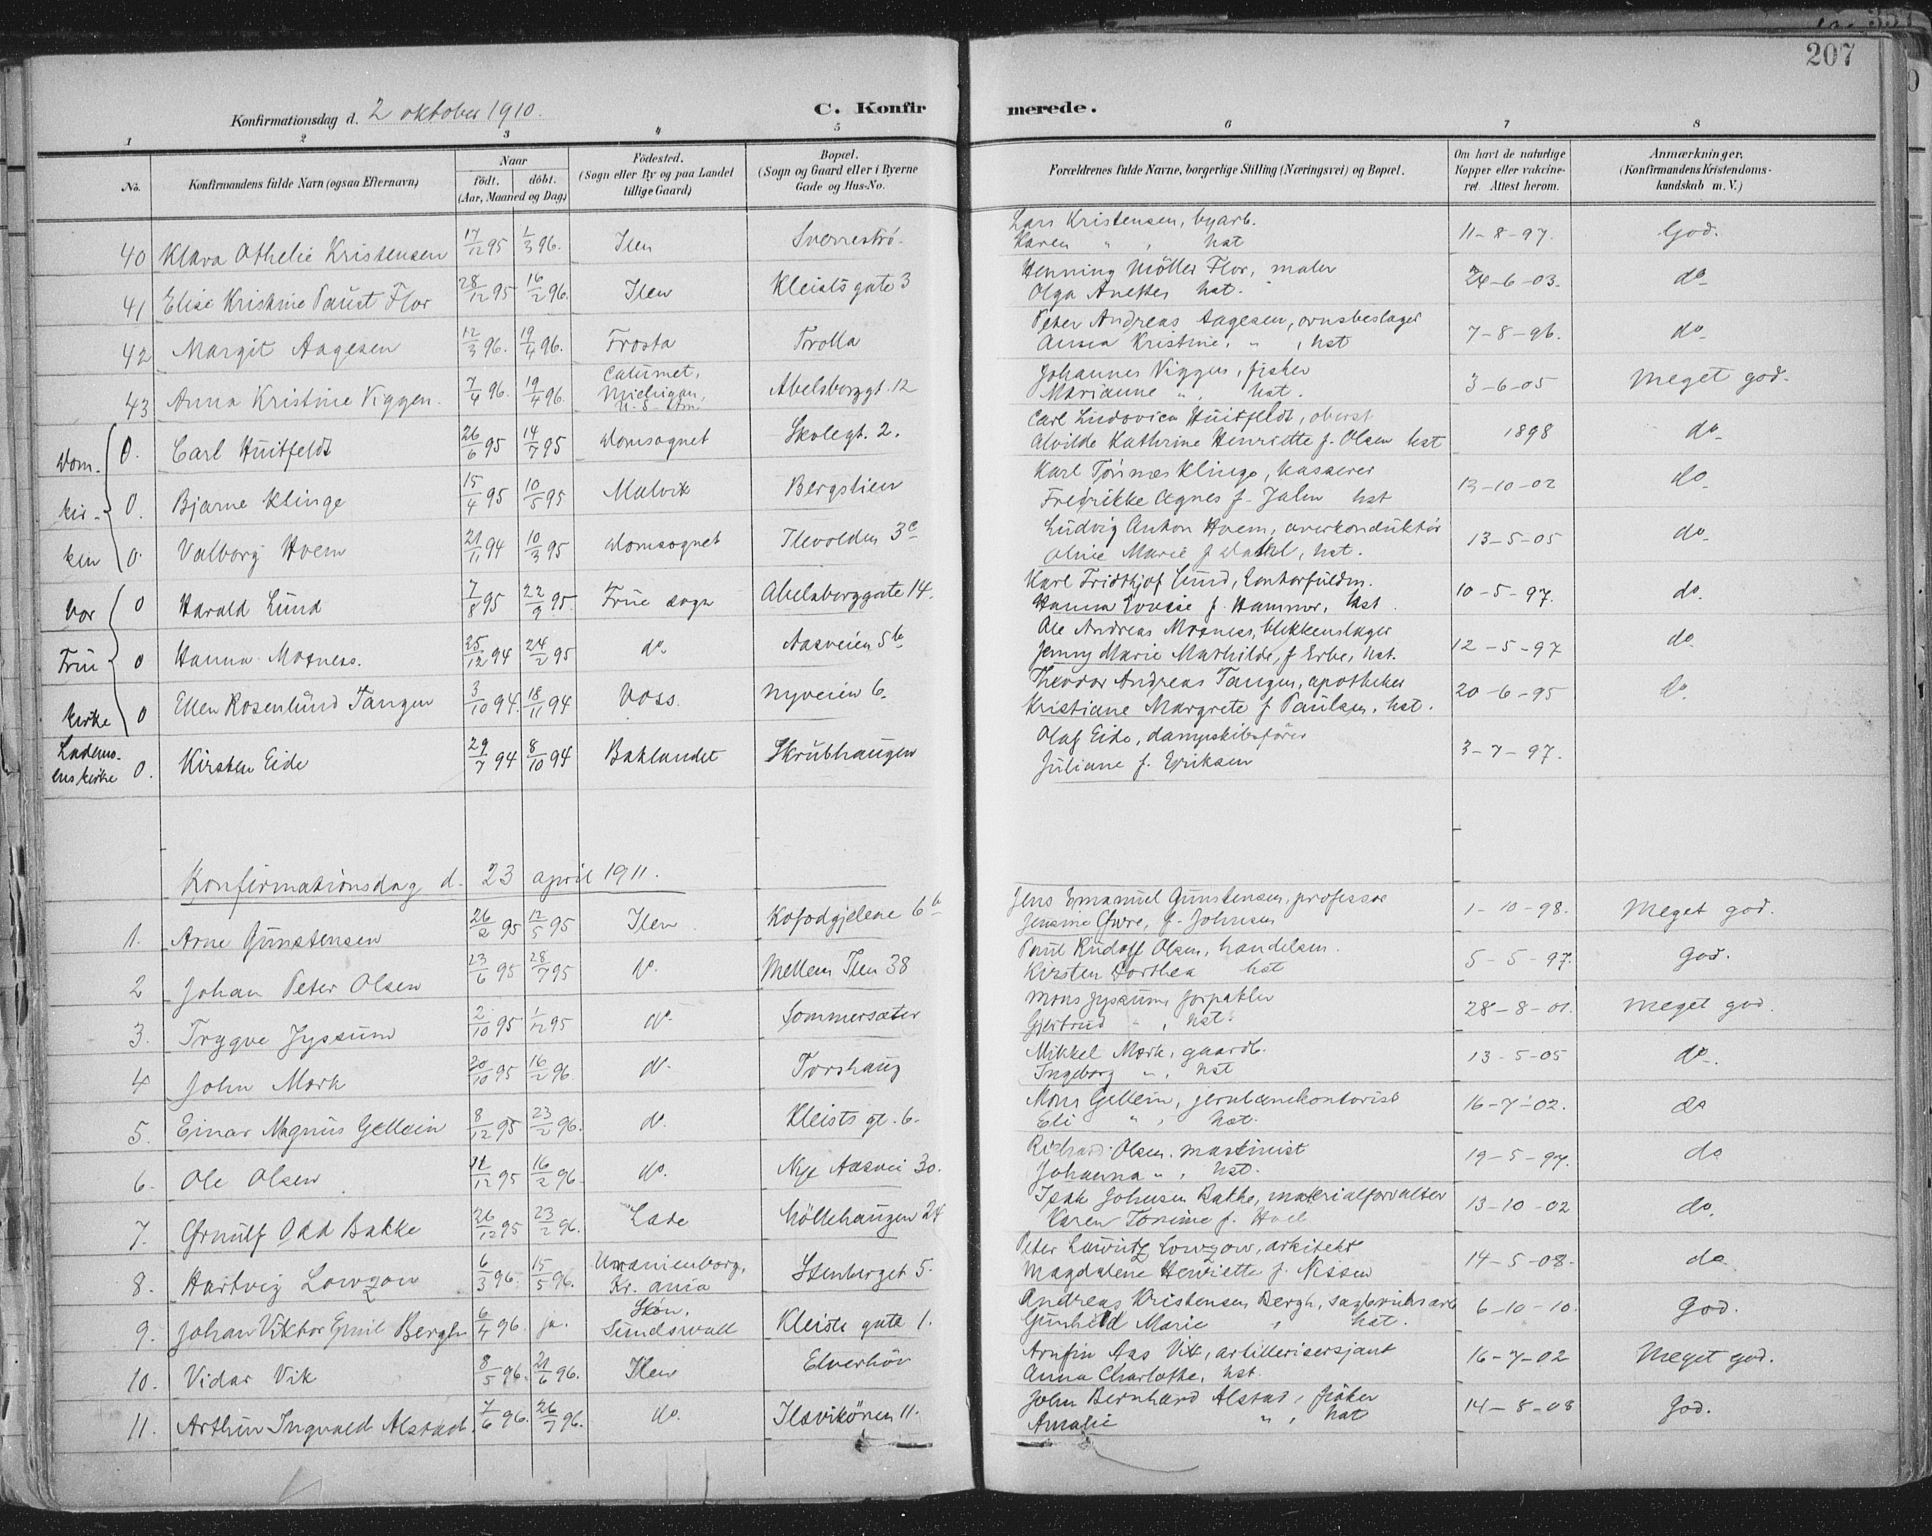 207
Konfirmationsdag d. 2 oktober 1910.
C. Konfirmerede.
1 2 3 4 5 6 7 8
No.
Konfirmandens fulde Navn (ogsaa Efternavn)
Naar
født. døbt.
(Aar, Maaned og Dag)
Fødested.
(Sogn eller By og paa Landet
tillige Gaard)
Bopæl.
(Sogn og Gaard eller i Byerne
Gade og Hus-No.
Forældrenes fulde Navne, borgerlige Stilling (Næringsvei) og Bopæl.
Om havt de naturlige
Kopper eller vakcine-
ret. Attest herom.
Anmærkninger.
(Konfirmandens Kristendoms-
kundskab m. V.)
40 Klara Athelie Kristensen 17/12 95 1/3 96. Ilen Sverrestrø. Lars Kristensen, byarb. 11-8-97. God.
Karen " , hst
41 Elise Kristine Paust Flor 28/12 95 16/2 96. Ilen Kleists gate 3 Henning Möller Flor, maler 24-6-03. do
Olga Anettes hst.
42 Margit Aagesen 12/3 96. 19/4 96. Frosta Trolla Peter Andreas Aagesen, ovnsbeslager 7-8-96. do
Anna Kristine, " , hst
43 Anna Kristine Viggen. 7/4 96. 19/4 96. Calumet, Michigan, U.S. Am Abelsborggt. 12 Johannes Viggen, fisker 3-6-05 Meget god.
Marianne " , hst.
Dom- 0. Carl Huitfeldt 26/6 95 14/7 95 Domsognet Skolegt. 2. Carl Ludovica Huitfeldt, oberst 1898 do
Alvilde Kathrine Henriette f. Olsen hst
kir- 0. Bjarne Klinge 15/4 95 10/5 95 Malvik Bergstien Karl Tönnes Klinge, kasserer 13-10-02 do
Fredrikke Agnes f. Jahn hst
ken 0. Valborg Hvem 21/11 94 10/3 95 Domsognet Ilevolden 3c Ludvig Anton Hvem, overkonduktör 13-5-05 do
Oline Marie f Dahl, hst.
Vor 0 Harald Lund 7/8 95 22/9 95. Frue sogn Abelsborggate 14. Karl Fridthjof Lund, kontorfuldm. 10-5-97. do.
Hanna Lovise f. Hammer, hst.
Frue 0 Hanna Mosness. 25/12 94 24/2 95 do. Aasveien 5b Ole Andreas Mosness, blikkenslager 12-5-97 do
Jenny Marie Mathilde, f Erbe, hst.
kirke 0 Ellen Rosenlund Tangen 3/10 94. 18/11 94 Voss. Nyveien 6. Theodor Andreas Tangen, apotheker 20-6-95 do.
Kristiane Margrete f Paulsen, hst.
Lademo-
ens kirke 0. Kirsten Eide 29/7 94 8/10 94 Baklandet Skrubhaugen Olaf Eide, dampskibsförer 3-7-97.
Juliane f. Eriksen
Konfirmationsdag d. 23 april 1911.
1. Arne Gunstensen 26/2 95 12/5 95 Ilen Kofodgjelene 6b Jens Emanuel Gunstensen, professor 1-10-98. Meget god.
Jensine Gure, f. Johnsen
2 Johan Peter Olsen 23/6 95 28/7 95 do. Mellem Ilen 38 Paul Rudolf Olsen, handelsm. 5-5-97. God.
Kirsten Dorthea hst
3. Trygve Jyssum 2/10 95 1/12 95 do. Sommersæter Mons Jyssum, forpakter 28-8-01. Meget god.
Gjertrud " , hst.
4 John Mork 20/10 95 16/2 96 do. Torshaug Mikkel Mork, gaardb. 13-5-05 do.
Ingeborg " , hst
5. Einar Magnus Gellein 8/12 95 23/2 96. do. Kleists gt. 6. Mons Gellein, jernbanekontorist 16-7-02. do
Eli " , hst.
6. Ole Olsen 11/12 95 16/2 96 do. Nye Aasvei 30. Richard Olsen, maskinist 19-5-97. do
Johanna " , hst.
7. Ørnulf Odd Bakke 26/12 95 23/2 96. Lade Möllehaugen 24 Isak Johnsen Bakke, materialforvalter 13-10-02 do.
Karen Tonine f. Hoel
8. Hartvig Lowzow 6/3 96. 15/5 96. Uranienborg, Kr. ania Stenberget 5. Peter Lauritz Lowzow, arkitekt 14-5-08. do
Magdalene Henriette f. Nissen
9. Johan Viktor Emil Bergh 6/4 96. ja. Skön, Sundsvall Kleists gate 1. Andreas Kristensen Bergh, sagbruksarb 6-10-10. God.
Gunhild Marie " hst.
10. Vidar Vik 8/5 96. 21/6 96. Ilen Elverhöi Arnfin Aas Vik, artillerisersjant 16-7-02 Meget god.
Anna Charlotte, hst.
11. Arthur Ingvald Alstad 7/6 96. 26/7 96. do. Ilsvikören 11. John Bernhard Alstad, fisker 14-8-08 God.
Amalie " , hst